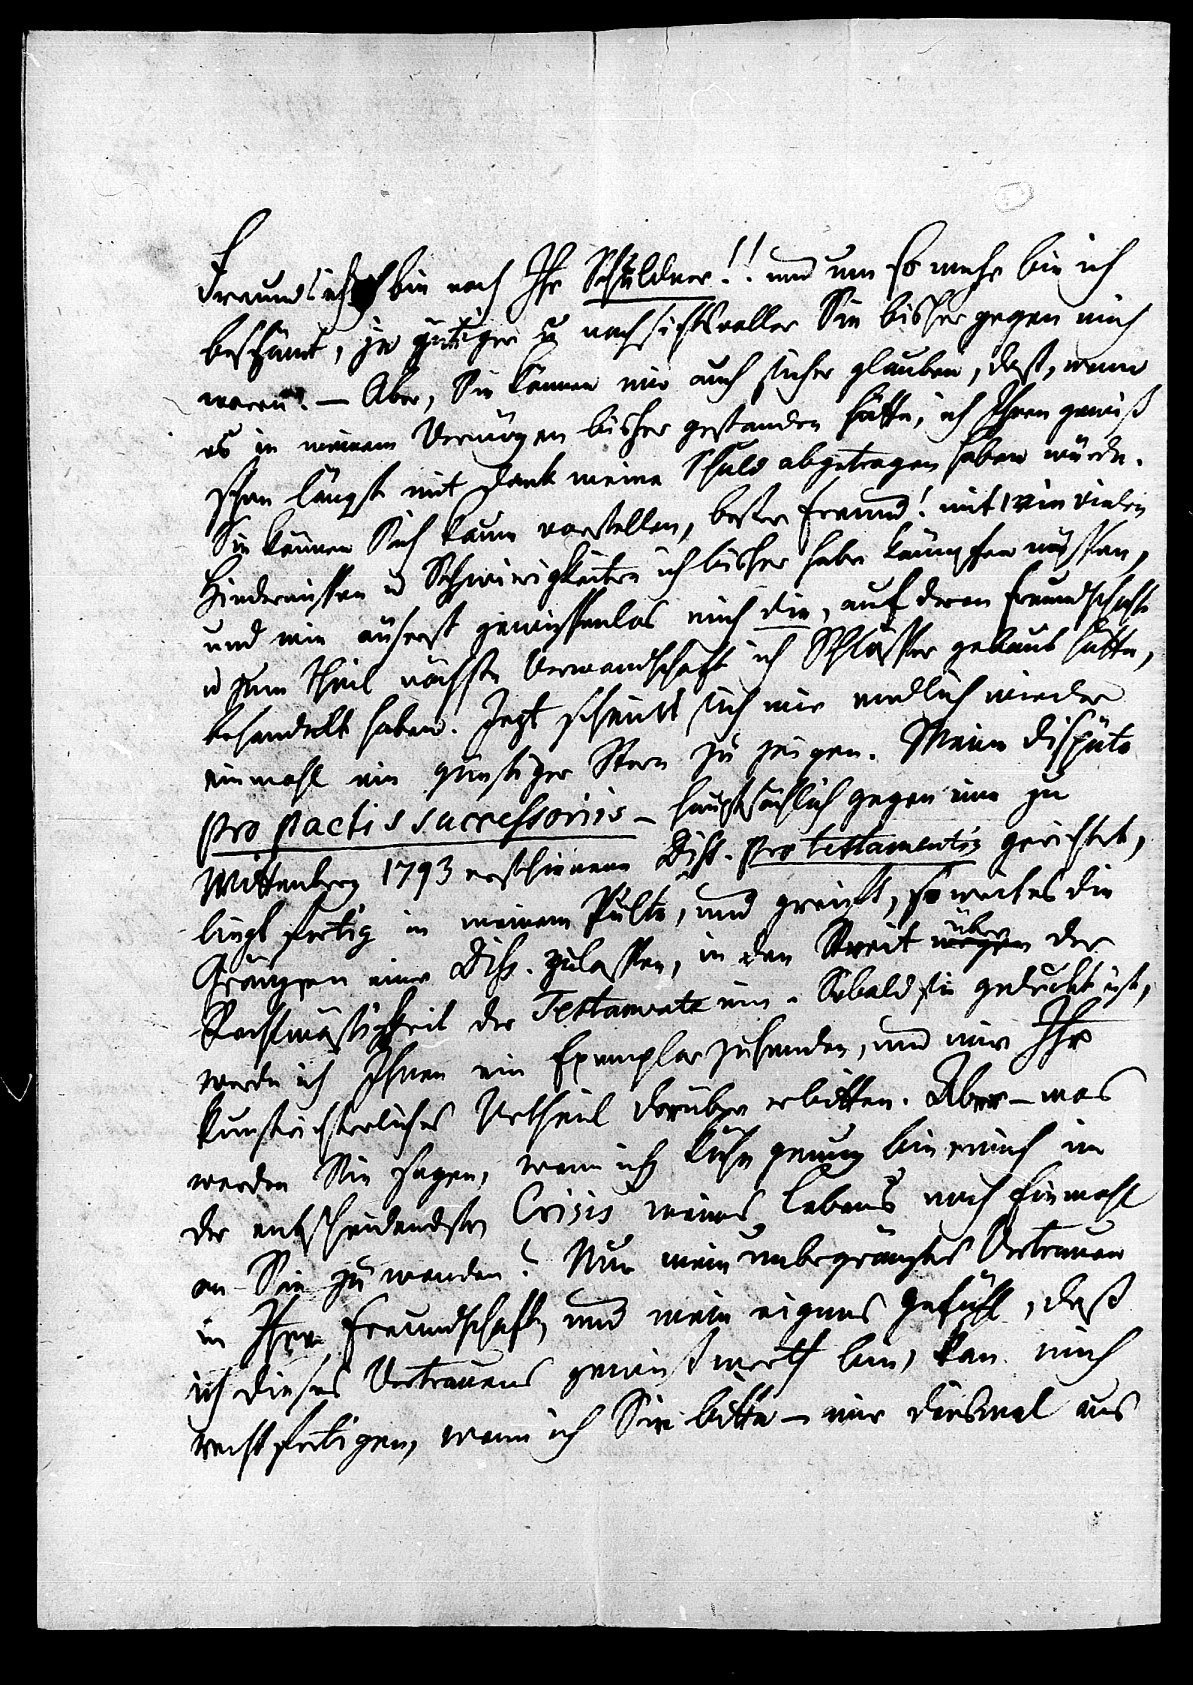 Freund! ich bin noch Ihr Schuldner!! und um so mehr bin ich
beschämt, je gütiger u nachsichtsvoller Sie bisher gegen mich
waren. — Aber, Sie können mir auch sicher glauben, daß, wenn
es in meinem Vermögen bisher gestanden hätte, ich Ihnen gewiß
schon längst mit Dank meine Schuld abgetragen haben würde.
Sie können Sich kaum vorstellen, bester Freund! mit wie vielen
Hindernissen u Schwierigkeiten ich bisher habe kämpfen müssen,
und wie äuserst gewissenlos mich die, auf deren Freundschaft
u zum Theil nächste Verwandschaft ich Schlösser gebaut hatte,
behandelt haben. Jezt scheint sich mir endlich wieder
einmahl ein günstiger Stern zu zeigen. Meine Dispüte
pro pactis successoriis — hauptsächlich gegen eine zu
Wittenberg 1793 erschienene Diss. pro testamentis gerichtet,
liegt fertig in meinem Pulte, und greift, so weit es die
Gränzen einer Diss. zulassen, in den Streit über der
Rechtmäsigkeit der Testamente ein. Sobald sie gedruckt ist,
werde ich Ihnen ein Exemplar zusenden, und mir Ihr
kunstrichterliches Urtheil darüber erbitten. Aber — was
werden Sie sagen, wenn ich kühn genug bin mich in
der entscheidendsten Crisis meines Lebens noch Einmahl
an Sie zu wenden? Nur mein unbegränztes Vertrauen
in Ihre Freundschaft, und mein eignes Gefühl, daß
ich dieses Vertrauens gewiß werth bin, kan mich
rechtfertigen, wenn ich Sie bitte — mir diesmal aus